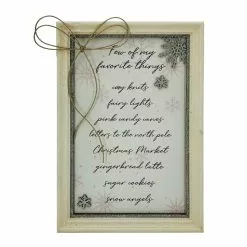 Few of my
favorite things
cozy knits
fairy lights
pink candy canes
letters to the north pole
Christmas Market
gingerbread latte
sugar cookies
snow angels